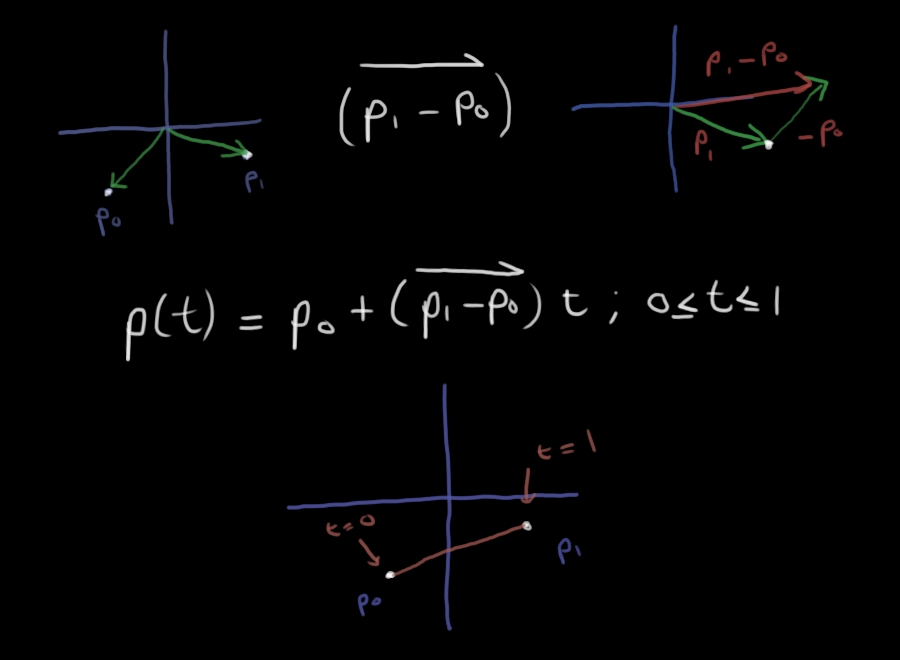 (p₁ - p₀)
p₁ - p₀
p₁
-p₀
p₁
p₀
p(t) = p₀ + (p₁-p₀) t ; 0≤t≤1
t = 1
t=0
p₁
p₀